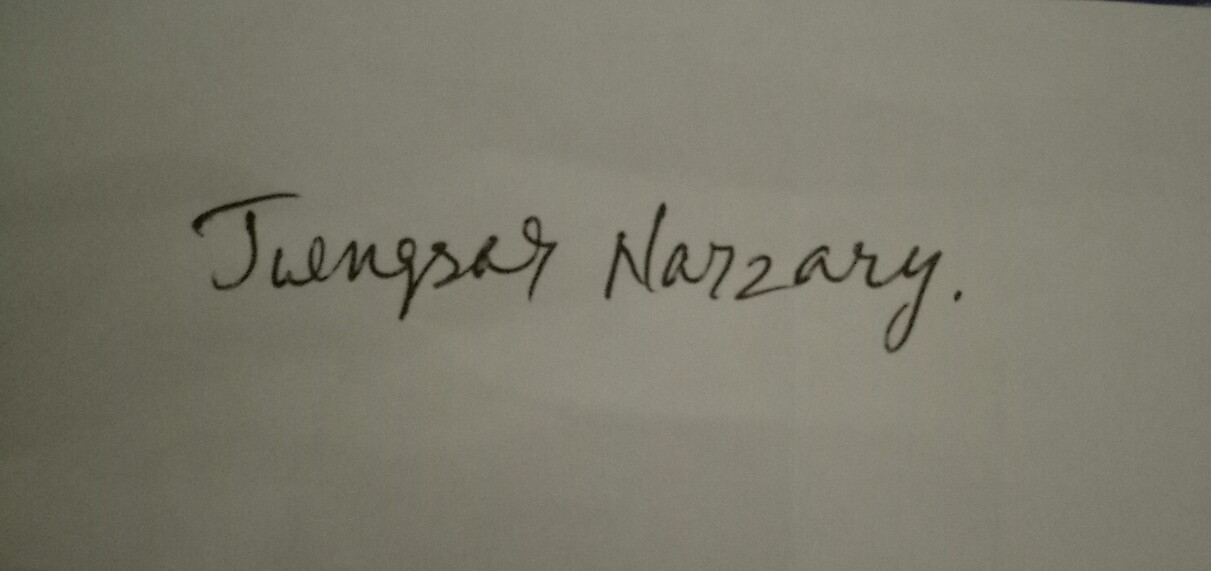 Jwengsar Narzary.